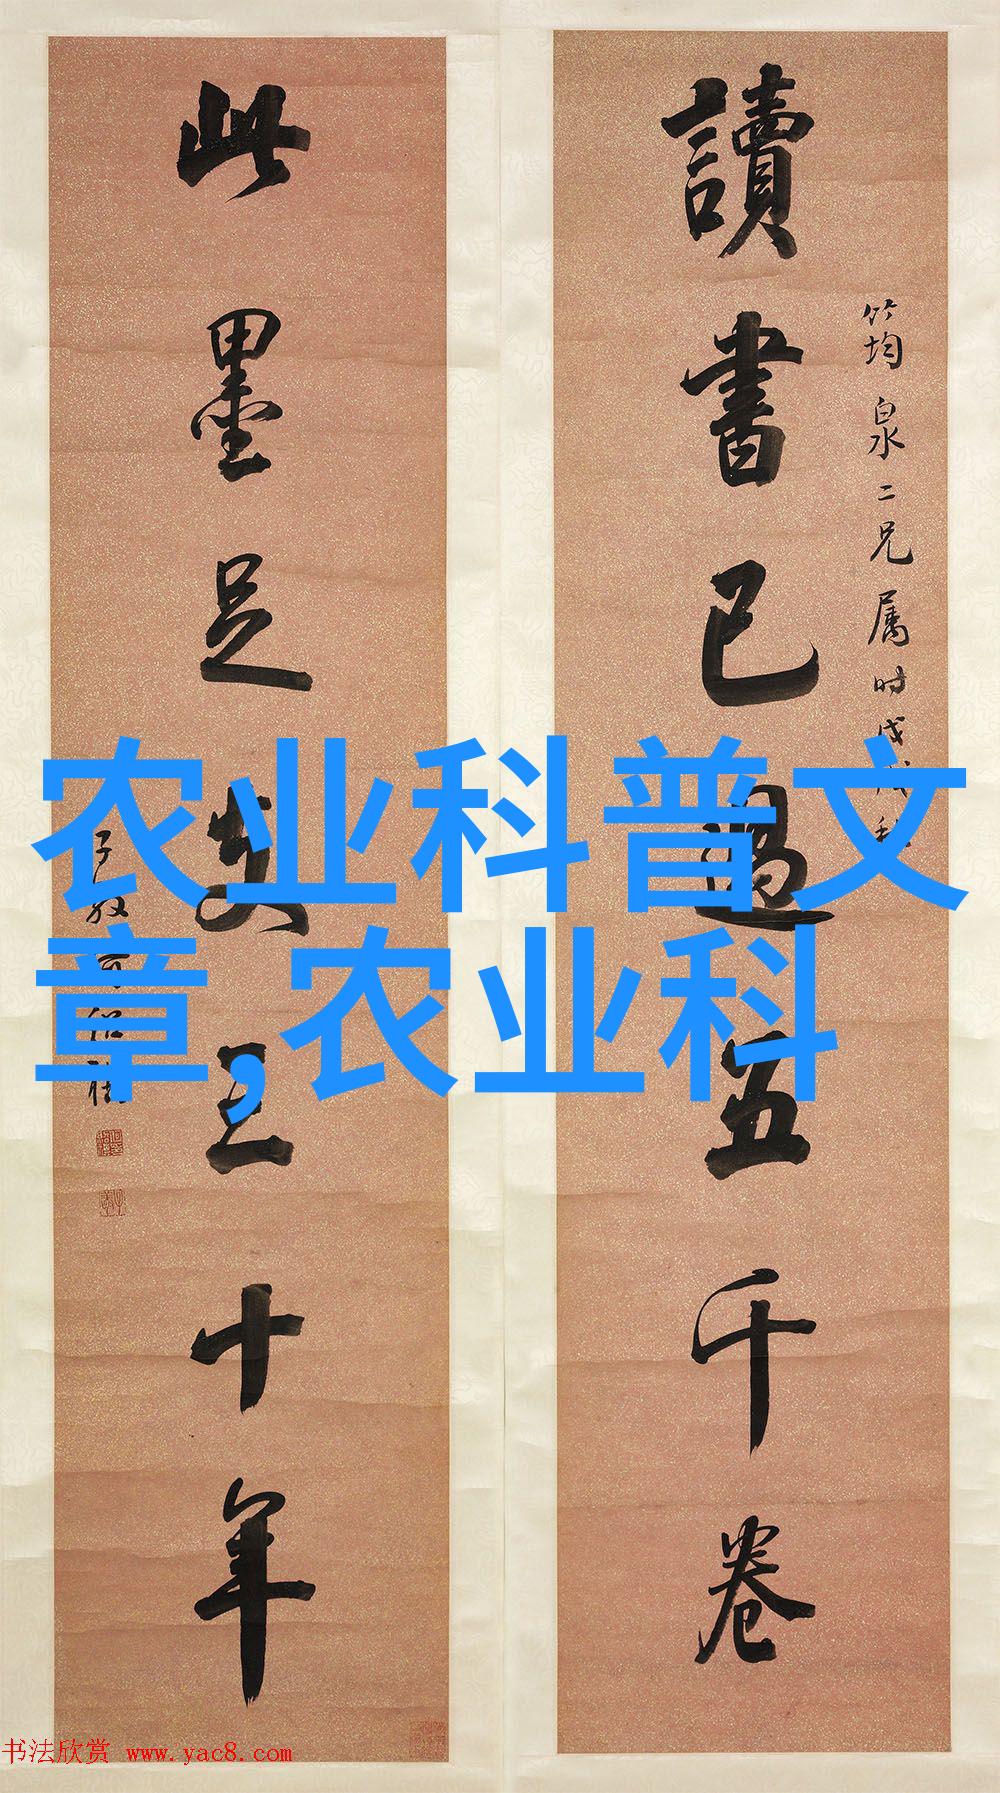 讀書已過五千卷
竹均泉二兄属時戊戌秋
此墨足支三十年
子毅何紹基
农业科普文
章,农业科
书法欣赏 www.yac8.com